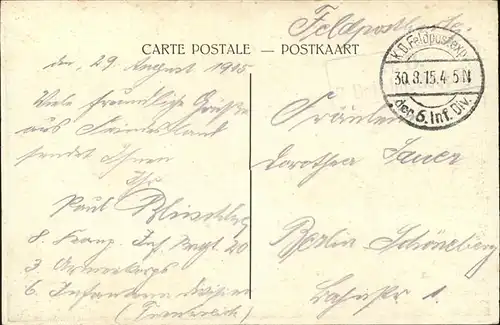 Feldpostkarte.
CARTE POSTALE — POSTKAART
K.D. Feldpostexp.
30.8.15.4-5N
der 6. Inf. Div.
den 29. August 1915
Viele freundliche Grüße
aus
sendet Ihnen
Ihr
Paul
8. Komp. Inf. Regt. 20
3. Armeekorps
6. Infanterie Division
(Frankreich)
Fräulein
Dorothea Sauer
Berlin-Schöneberg
Bahnstr. 1.